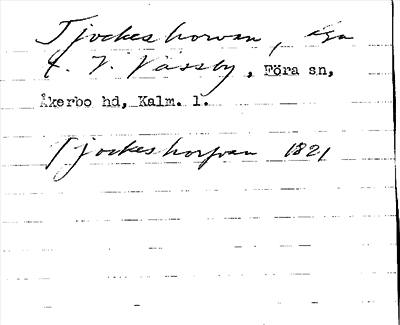 Tjockeshorvan, äga
t. V. Vässby, Föra sn,
Åkerbo hd, Kalm. l.
Tjockeshorfvan 1821